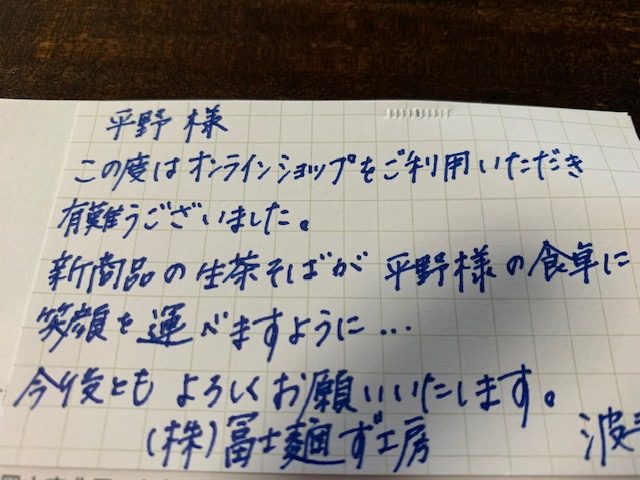 平野様
この度はオンラインショップをご利用いただき
有難うございました。
新商品の生茶そばが 平野様の食卓に
笑顔を運べますように…
今後ともよろしくお願いいたします。
(株)冨士麺ず工房 波